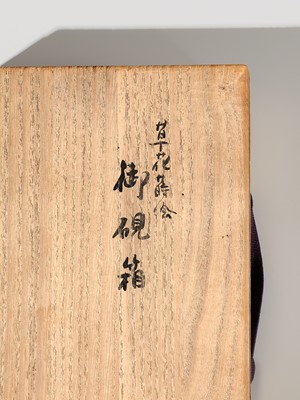 草花蒔絵
御硯箱